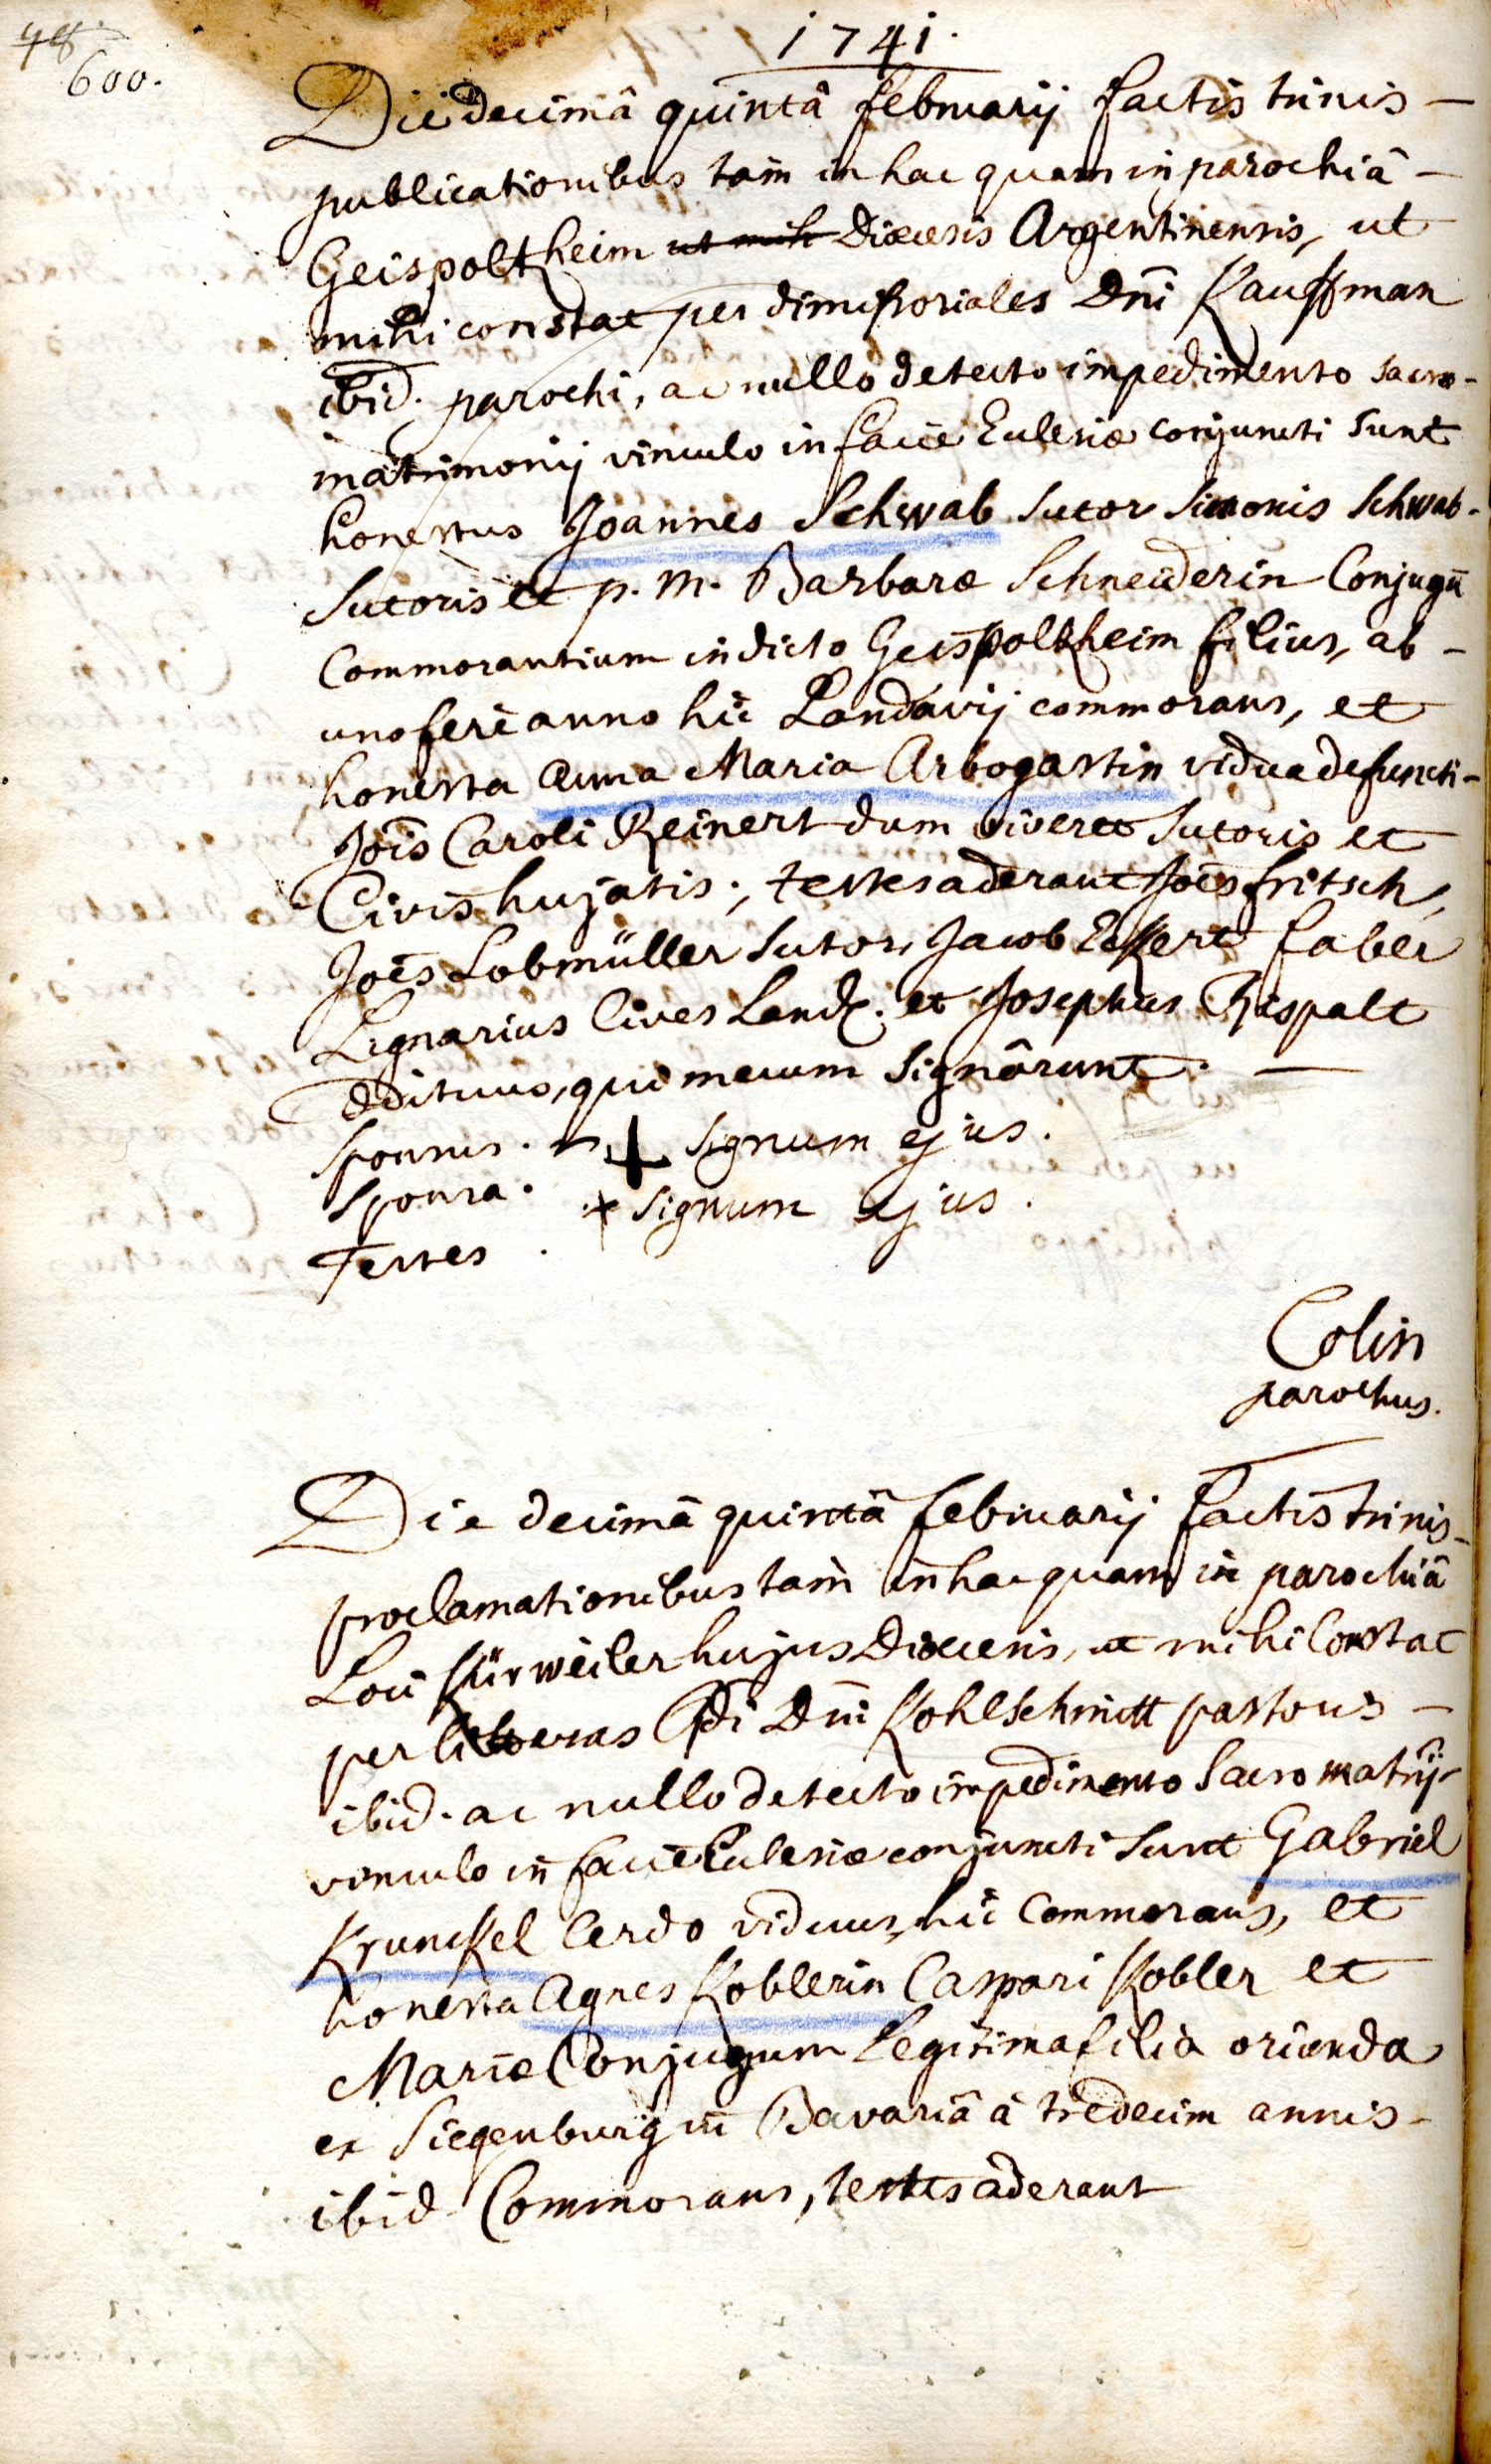 48.
600.
1741.
Die decimâ quintâ februarij factis trinis -
publicationibus tam in hac quam in parochiâ -
Geispoltzheim ut mih Diœcesis Argentinensis, ut
mihi constat per dimissoriales Dni Kauffman
ibid. parochi, ac nullo detecto impedimento sacro -
matrimonij vinculo in facie Ecclesiæ conjuncti sunt
honestus Joannes Schwab Sutor Simonis Schwab -
Sutoris et p. m. Barbaræ Schneiderin Conjugū
Commorantium in dicto Geispoltzheim filius, ab -
uno ferè anno hìc Landavij commorans, et
honesta Anna Maria Arbogastin vidua defuncti -
Jois Caroli Reinert dum viveret Sutoris et
Civis hujatis; testes aderant Joes fritsch,
Joes Lobmüller Sutor, Jacob Eckert faber
Lignarius Cives Land. et Josephus Rispalt
Ædituus, qui mecum signârunt. —
Sponsus. Signum ejus.
Sponsa. Signum ejus.
Testes.
Colin
parochus.
Die decimâ quintâ februarij factis trinis -
proclamationibus tam in hac quam in parochiâ
Loci Kürweiler hujus Diœcesis, ut mihi Constat
per litteras Dni Kohlschmitt pastoris -
ibid. ac nullo detecto impedimento Sacro matrij
vinculo in facie Ecclesiæ conjuncti sunt Gabriel
Krunckel Cerdo viduus, hìc Commorans, et
honesta Agnes Koblerin Caspari Kobler et
Mariæ Conjugum legitima filia oriunda
ex Siegenburg in Bavariâ à tredecim annis -
ibid. Commorans, testes aderant